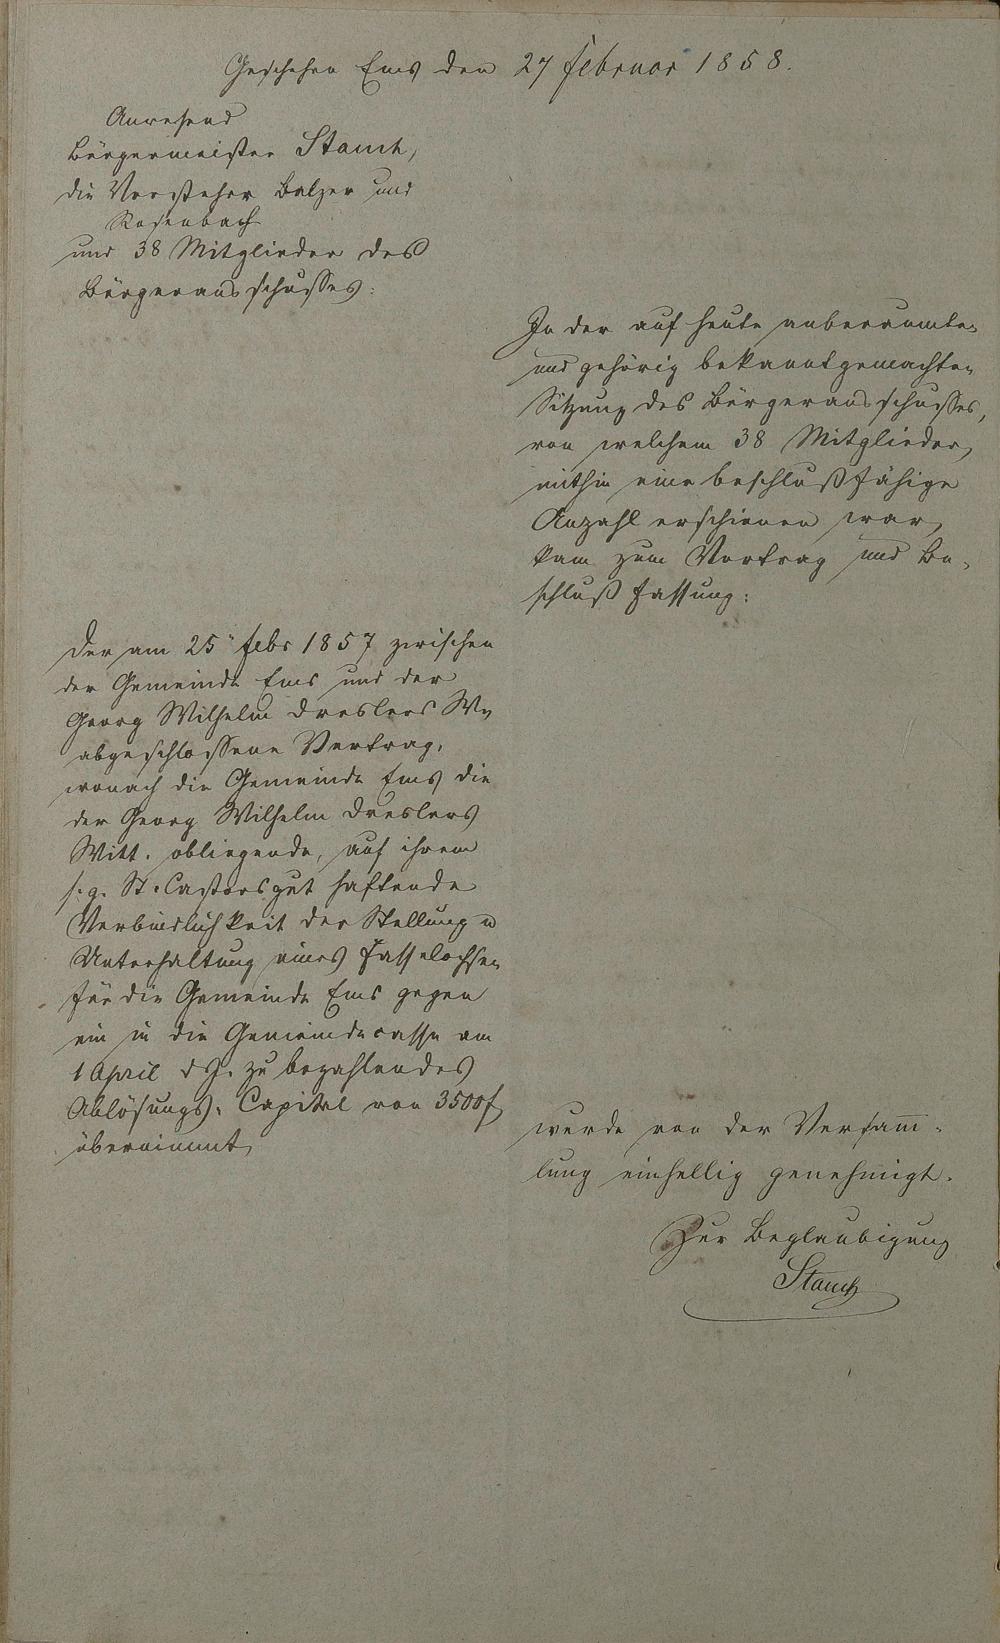 Geschehen Ems den 27 Februar 1858.
Anwesend
Bürgermeister Stauch,
die Vorsteher Balzer und
Rosenbach
und 38 Mitglieder des
Bürgerausschusses:
In der auf heute anberaumten
und gehörig bekanntgemachten
Sitzung des Bürgerausschusses,
von welchem 38 Mitglieder,
mithin eine beschlußfähige
Anzahl erschienen war,
kam zum Vortrag und Be-
schlußfassung:
Der am 25 Febr 1857 zwischen
der Gemeinde Ems und der
Georg Wilhelm Dreslers Ww
abgeschlossene Vertrag,
wonach die Gemeinde Ems die
der Georg Wilhelm Dreslers
Witt. obliegende, auf ihrem
s.g. St. Castorsgut haftende
Verbindlichkeit der Stellung u
Unterhaltung eines Fasselochsen
für die Gemeinde Ems gegen
ein in die Gemeindecasse am
1 April d J. zu bezahlendes
Ablösungs-Capital von 3500 f
übernimmt,
wurde von der Versam̅-
lung einhellig genehmigt.
Zur Beglaubigung
Stauch